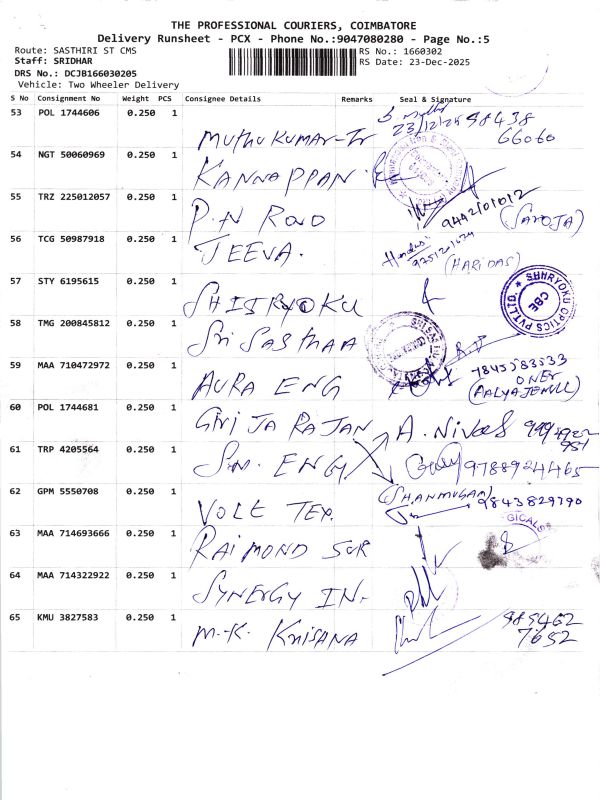 THE PROFESSIONAL COURIERS, COIMBATORE
Delivery Runsheet - PCX - Phone No.:9047080280 - Page No.:5
Route: SASTHIRI ST CMS RS No.: 1660302
Staff: SRIDHAR RS Date: 23-Dec-2025
DRS No.: DCJB166030205
Vehicle: Two Wheeler Delivery
S No Consignment No Weight PCS Consignee Details Remarks Seal & Signature
53 POL 1744606 0.250 1 MUTHU KUMAR-Tr 23/12/25 98438
66060
54 NGT 50060969 0.250 1 KANNAPPAN
55 TRZ 225012057 0.250 1 P.N ROAD 9442101012 (SAROJA)
56 TCG 50987918 0.250 1 JEEVA. (HARIDAS)
57 STY 6195615 0.250 1 SHIJRYOKU SHHRYOKU OPTICS PVT.LTD. * CBE
58 TMG 200845812 0.250 1 Sri SASTHAA
59 MAA 710472972 0.250 1 AURA ENG 7845583533
60 POL 1744681 0.250 1 GIRIJA RAJAN A. Nivas
61 TRP 4205564 0.250 1 S.M. ENGY 9788924465
62 GPM 5550708 0.250 1 VOLT TEX. (SHANMUGAM) 9843829790
63 MAA 714693666 0.250 1 RAIMOND SUR GICALS
64 MAA 714322922 0.250 1 SYNERGY IN.
65 KMU 3827583 0.250 1 M.K. KRISANA 985462
7652